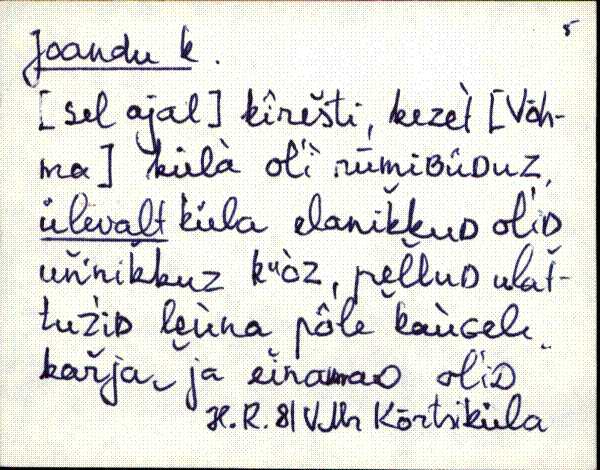 5
Joandu k.
[sel ajal] kîrešti, kezèt [Võh-
ma] külà ol'ì rūmiʙûᴅuz,
ülevalt küla elanikkuᴅ olìᴅ
uń'nikkuz kᵘòz, pèĺ̌luᴅ ulat-
tužiᴅ leùna pôle kaùɢele
karja, ja eìnamaᴅ ol'iᴅ
H.R. 81 VMr Kõrtsiküla